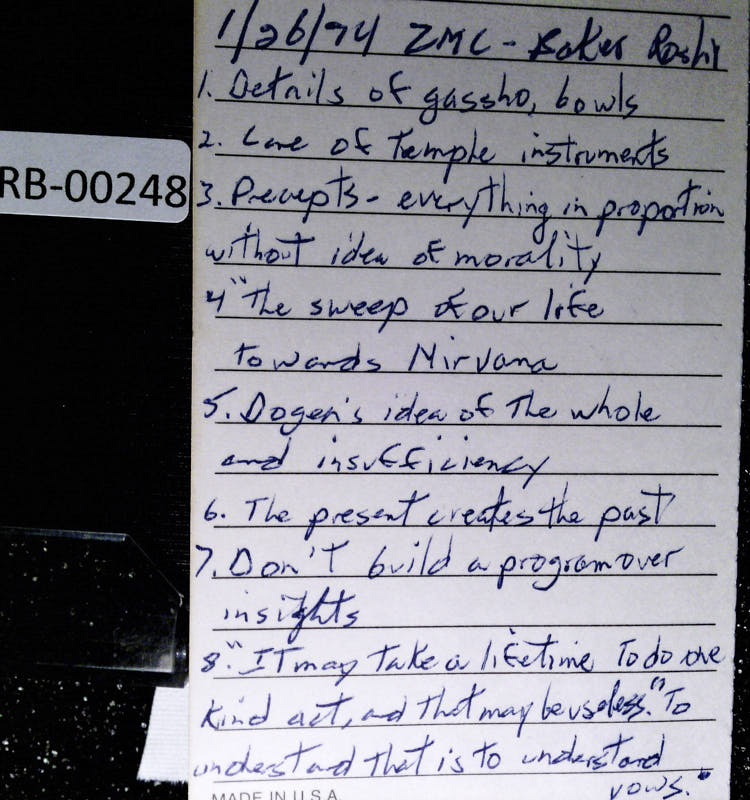 1/26/74 ZMC - Baker Roshi
1. Details of gassho, bowls
2. Care of temple instruments
RB-00248
3. Precepts - everything in proportion
without idea of morality
4 "The sweep of our life
towards Nirvana
5. Dogen's idea of the whole
and insufficiency
6. The present creates the past
7. Don't build a program over
insights
8. "It may take a lifetime to do one
kind act, and that may be useless." To
understand that is to understand
vows."
MADE IN U.S.A.